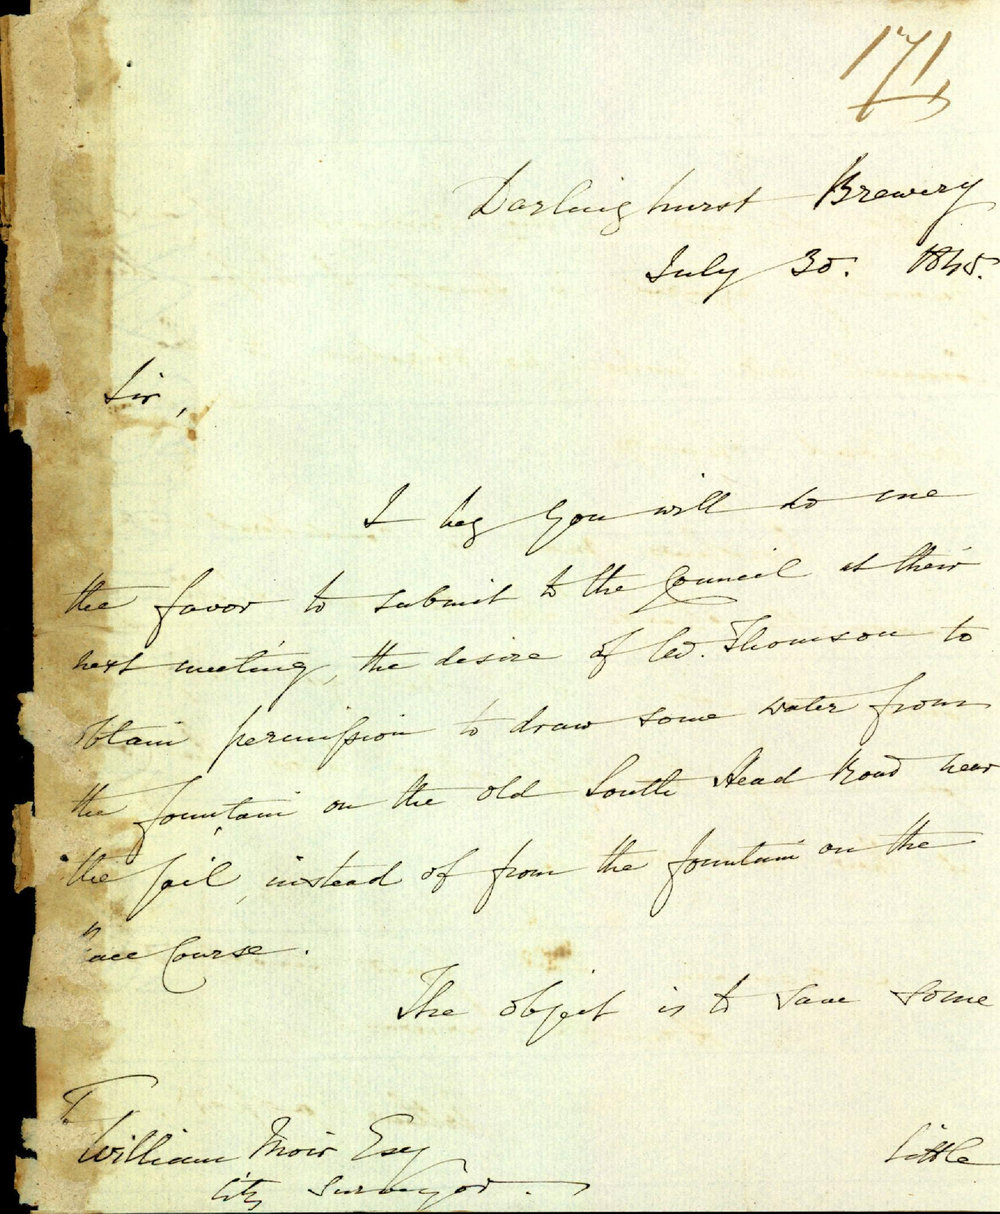 171
Darlinghurst Brewery
July 30. 1845.
Sir,
I beg you will do me
the favor to submit to the Council at their
next meeting, the desire of Ed. Thomson to
obtain permission to draw some water from
the fountain on the old South Head Road near
the jail, instead of from the fountain on the
Race Course.
The object is to save some
To
William Moir Esq
City Surveyor.
little